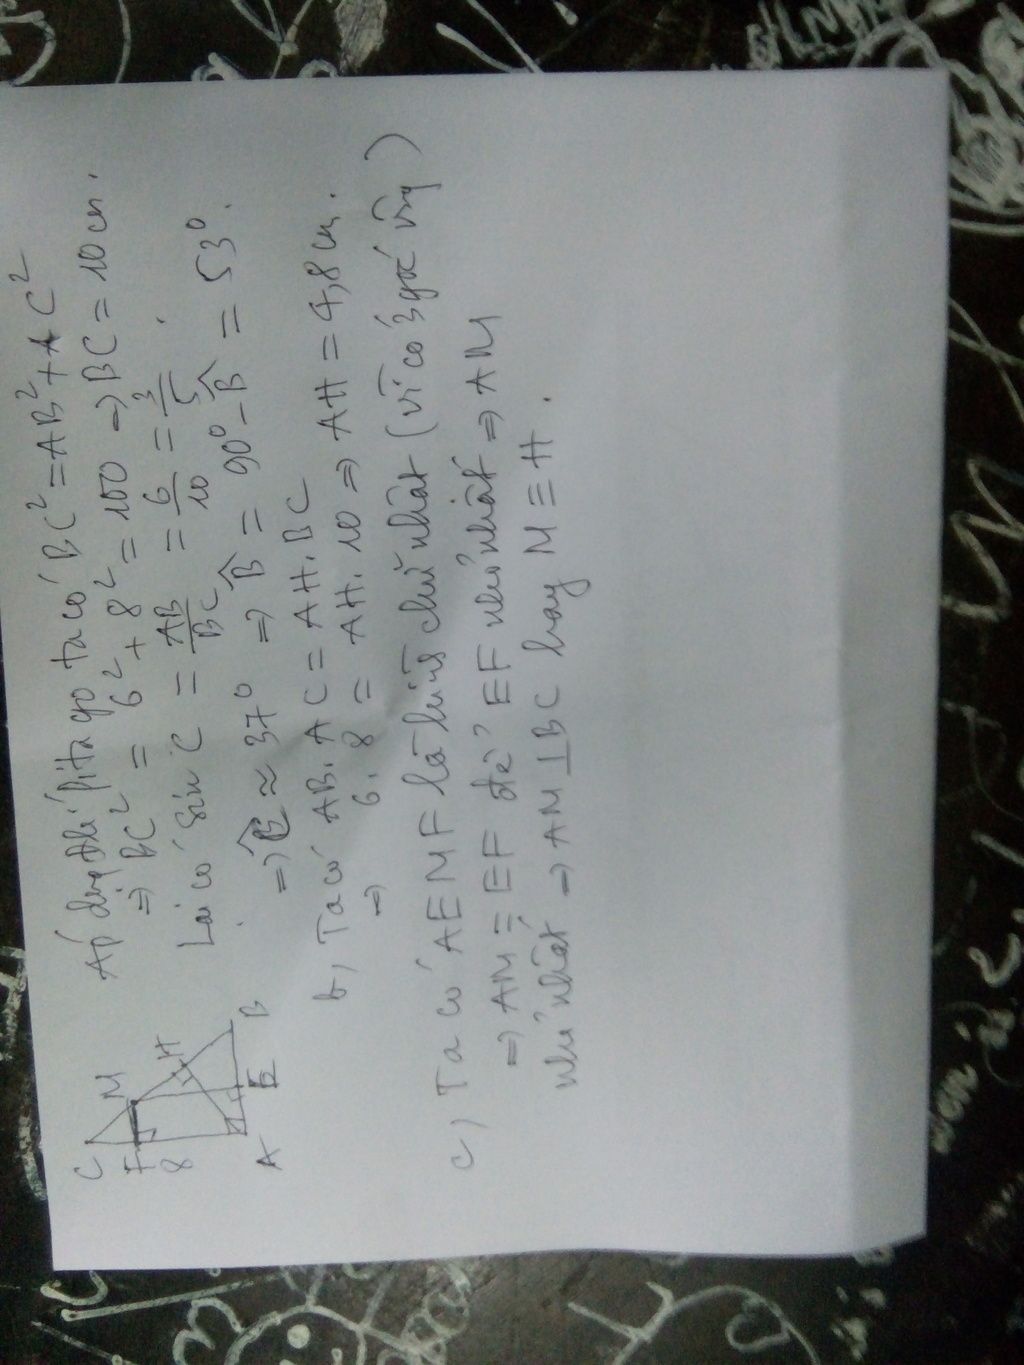 Áp dụng đlí pitago ta có BC² = AB² + AC²
⇒ BC² = 6² + 8² = 100 ⇒ BC = 10 cm.
Lại có sin C = AB/BC = 6/10 = 3/5.
⇒ Ĉ ≈ 37⁰ ⇒ B̂ = 90⁰ - B̂ = 53⁰.
b, Ta có AB. AC = AH. BC
⇒ 6. 8 = AH. 10 ⇒ AH = 4,8 cm.
c) Ta có AEMF là hình chữ nhật (vì có 3 góc vg)
⇒ AM = EF để EF nhỏ nhất ⇒ AM
nhỏ nhất ⇒ AM ⊥ BC hay M ≡ H.
C
M
F
8
H
A
E
B